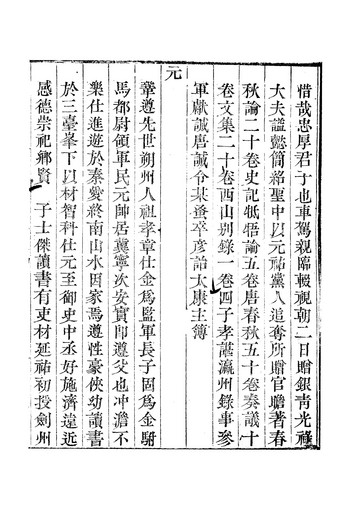 惜哉忠厚君子也車駕親臨輟視朝二日贈銀青光祿
大夫諡懿簡紹聖中以元祐黨人追奪所贈官瞻著春
秋論二十卷史記牴牾論五卷唐春秋五十卷奏議十
卷文集二十卷西山別錄一卷四子孝諶瀛州錄事參
軍獻誠唐誠令某蚤卒彥詒太康主簿
元
鞏遵先世朔州人祖孝章仕金為監軍長子固為金駙
馬都尉領軍民元帥居冀寧次安實即遵父也冲澹不
樂仕進遊於秦愛終南山水因家焉遵性豪俠幼讀書
於三臺峯下以材智科仕元至御史中丞好施濟遠近
感德崇祀鄉賢　子士傑讀書有吏材延祐初授劍州